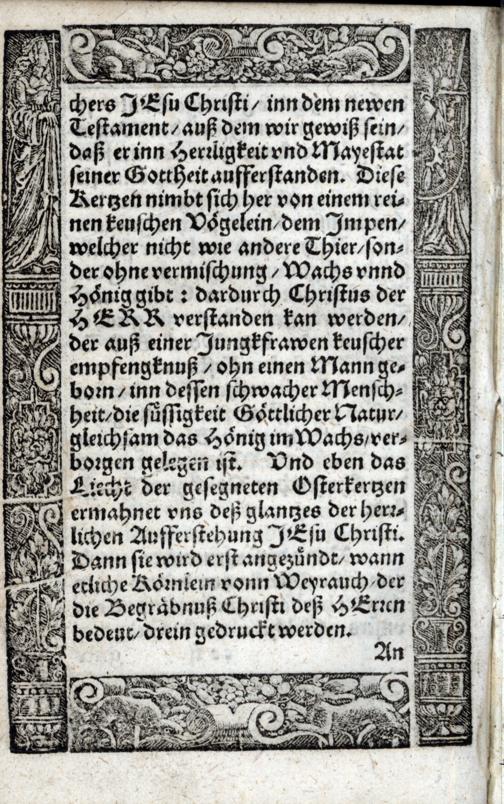 chers JEsu Christi/ inn dem newen
Testament/ auß dem wir gewiß sein/
daß er inn Herrligkeit vnd Mayestat
seiner Gottheit aufferstanden. Diese
Kertzen nimbt sich her von einem rei-
nen keuschen Vögelein/ dem Impen/
welcher nicht wie andere Thier/ son-
der ohne vermischung/ Wachs vnnd
Hönig gibt: dardurch Christus der
HERR verstanden kan werden/
der auß einer Jungkfrawen keuscher
empfengknuß/ ohn einen Mann ge-
born/ inn dessen schwacher Mensch-
heit/ die süssigkeit Göttlicher Natur/
gleichsam das Hönig im Wachs/ ver-
borgen gelegen ist. Vnd eben das
Liecht der gesegneten Osterkertzen
ermahnet vns deß glantzes der herr-
lichen Aufferstehung JEsu Christi.
Dann sie wird erst angezündt/ wann
etliche Körnlein vonn Weyrauch/ der
die Begräbnuß Christi deß HErren
bedeut/ drein gedruckt werden.
An